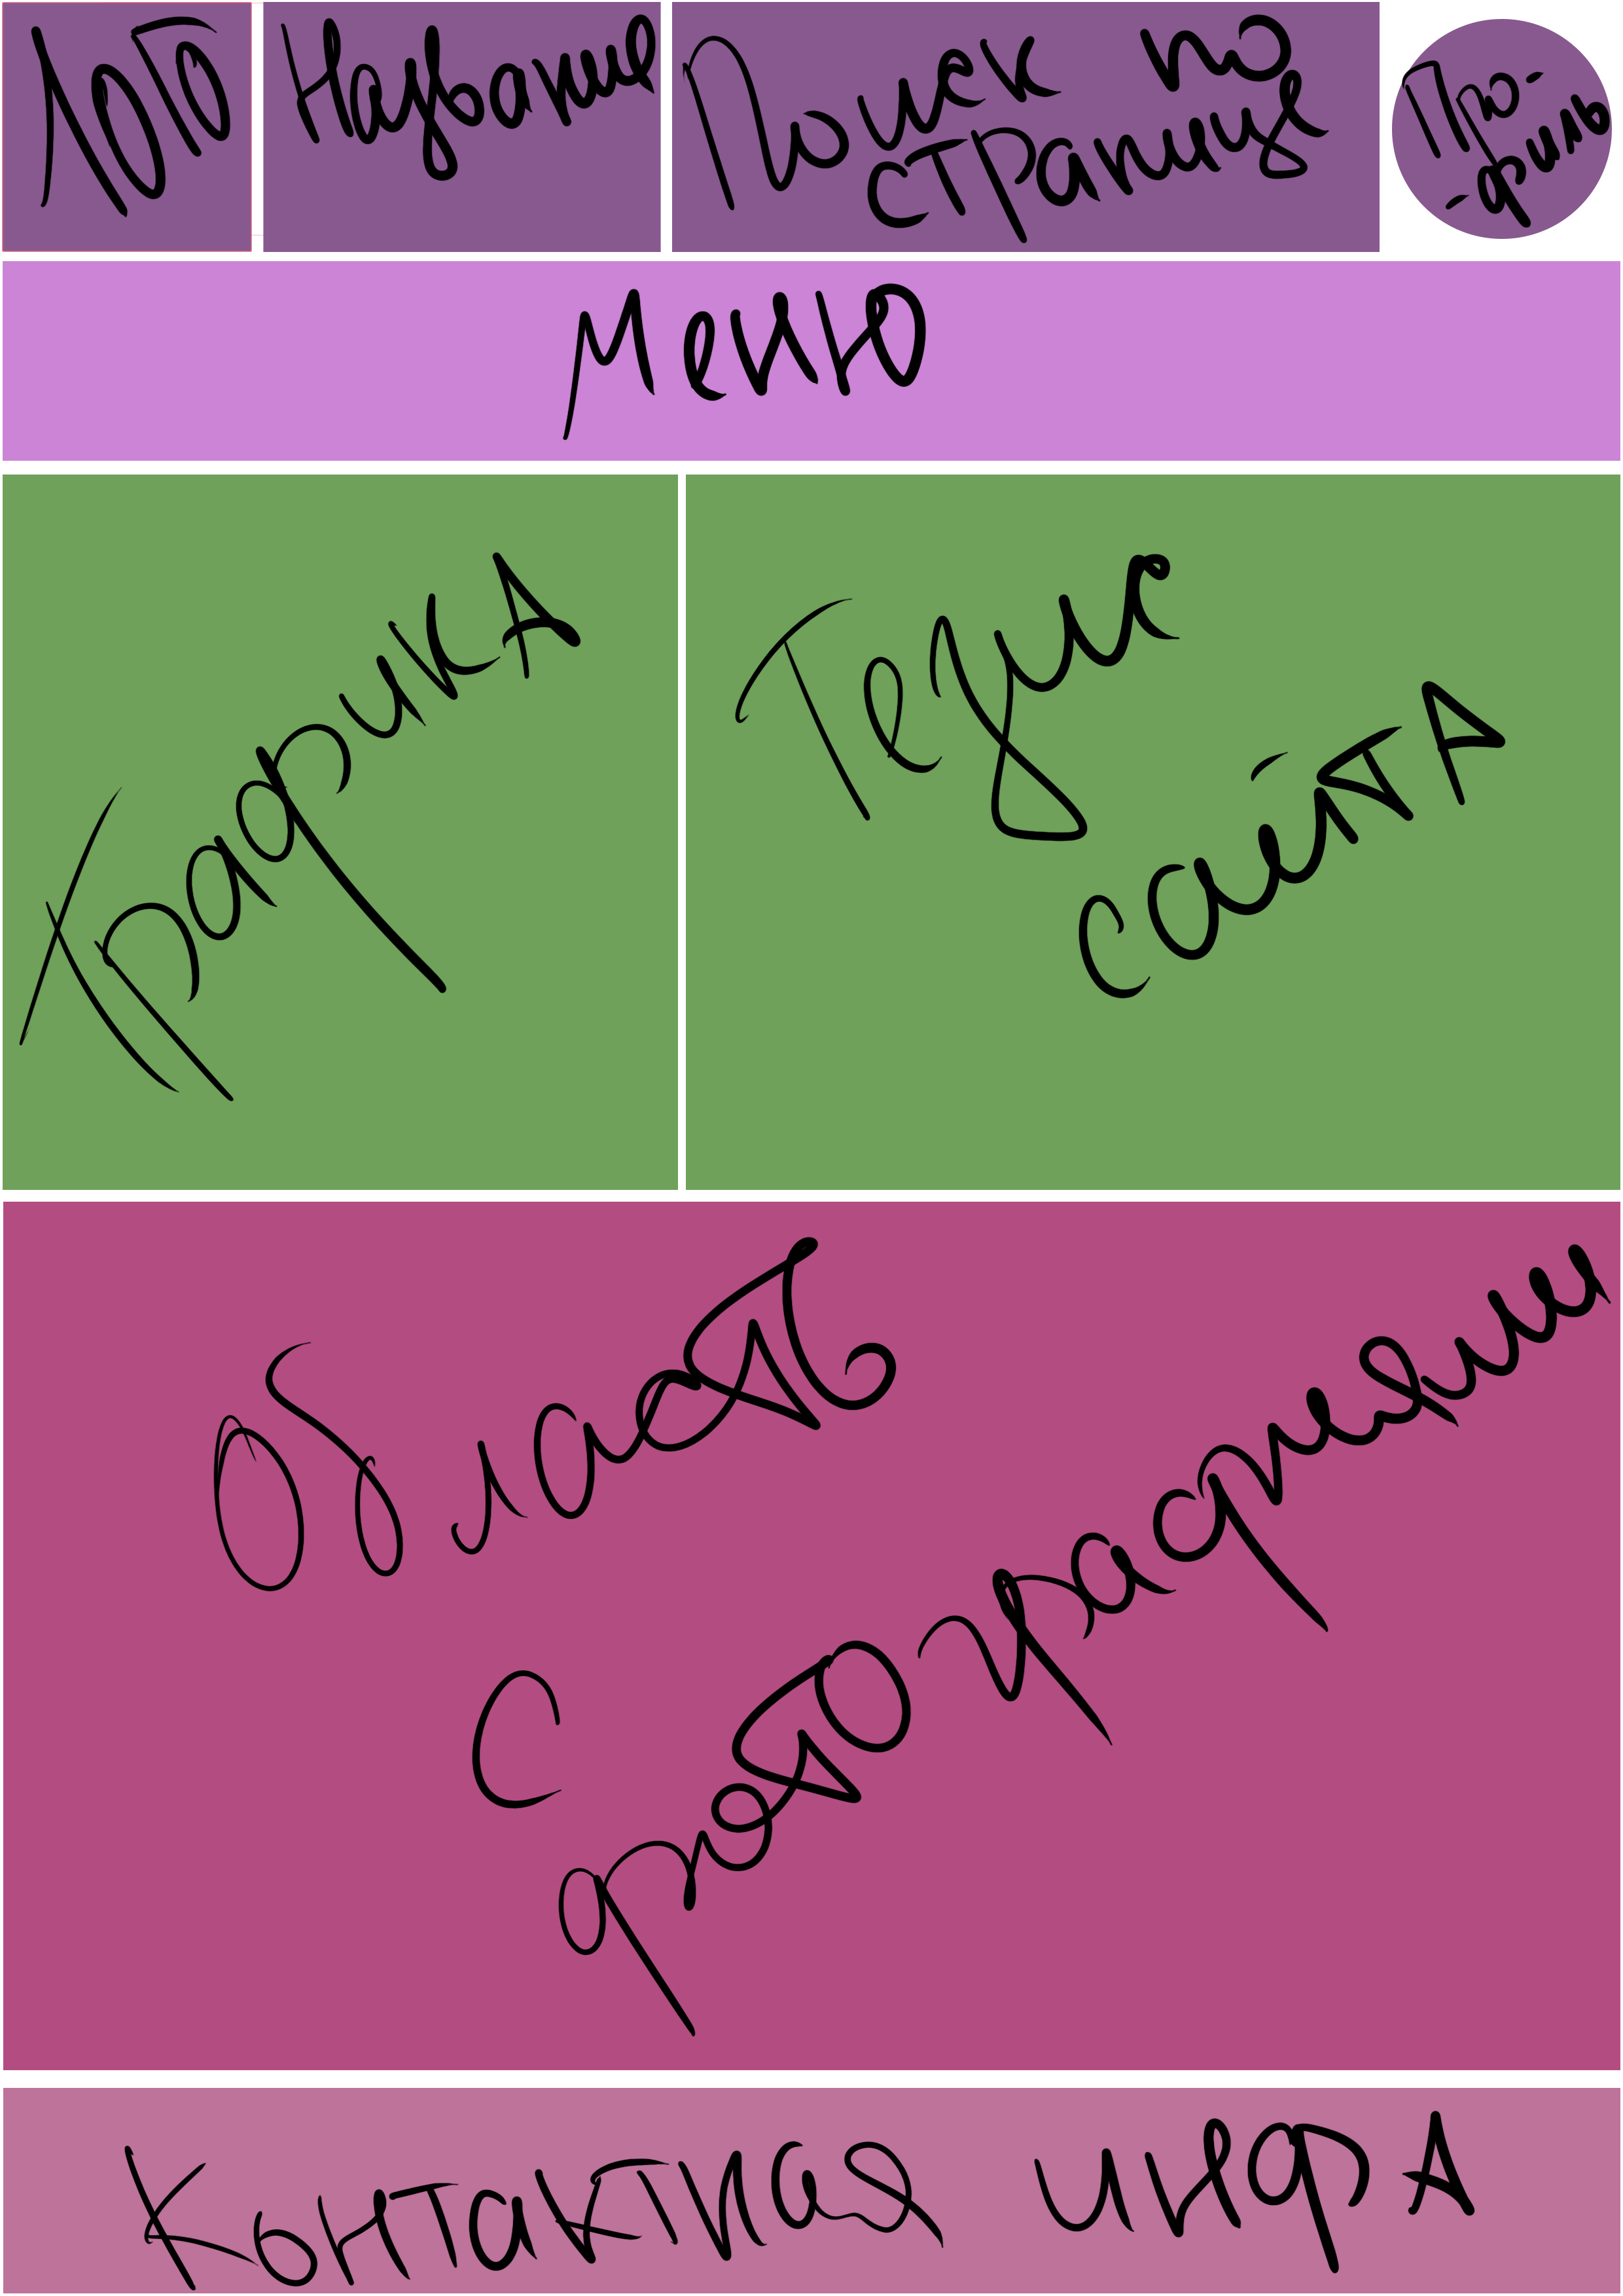 ЛОГО
Название
Поиск из
страниц
Про-
-филь
Меню
Графика
Тезис
сайта
Область
С
фотографиями
Контактная инфа